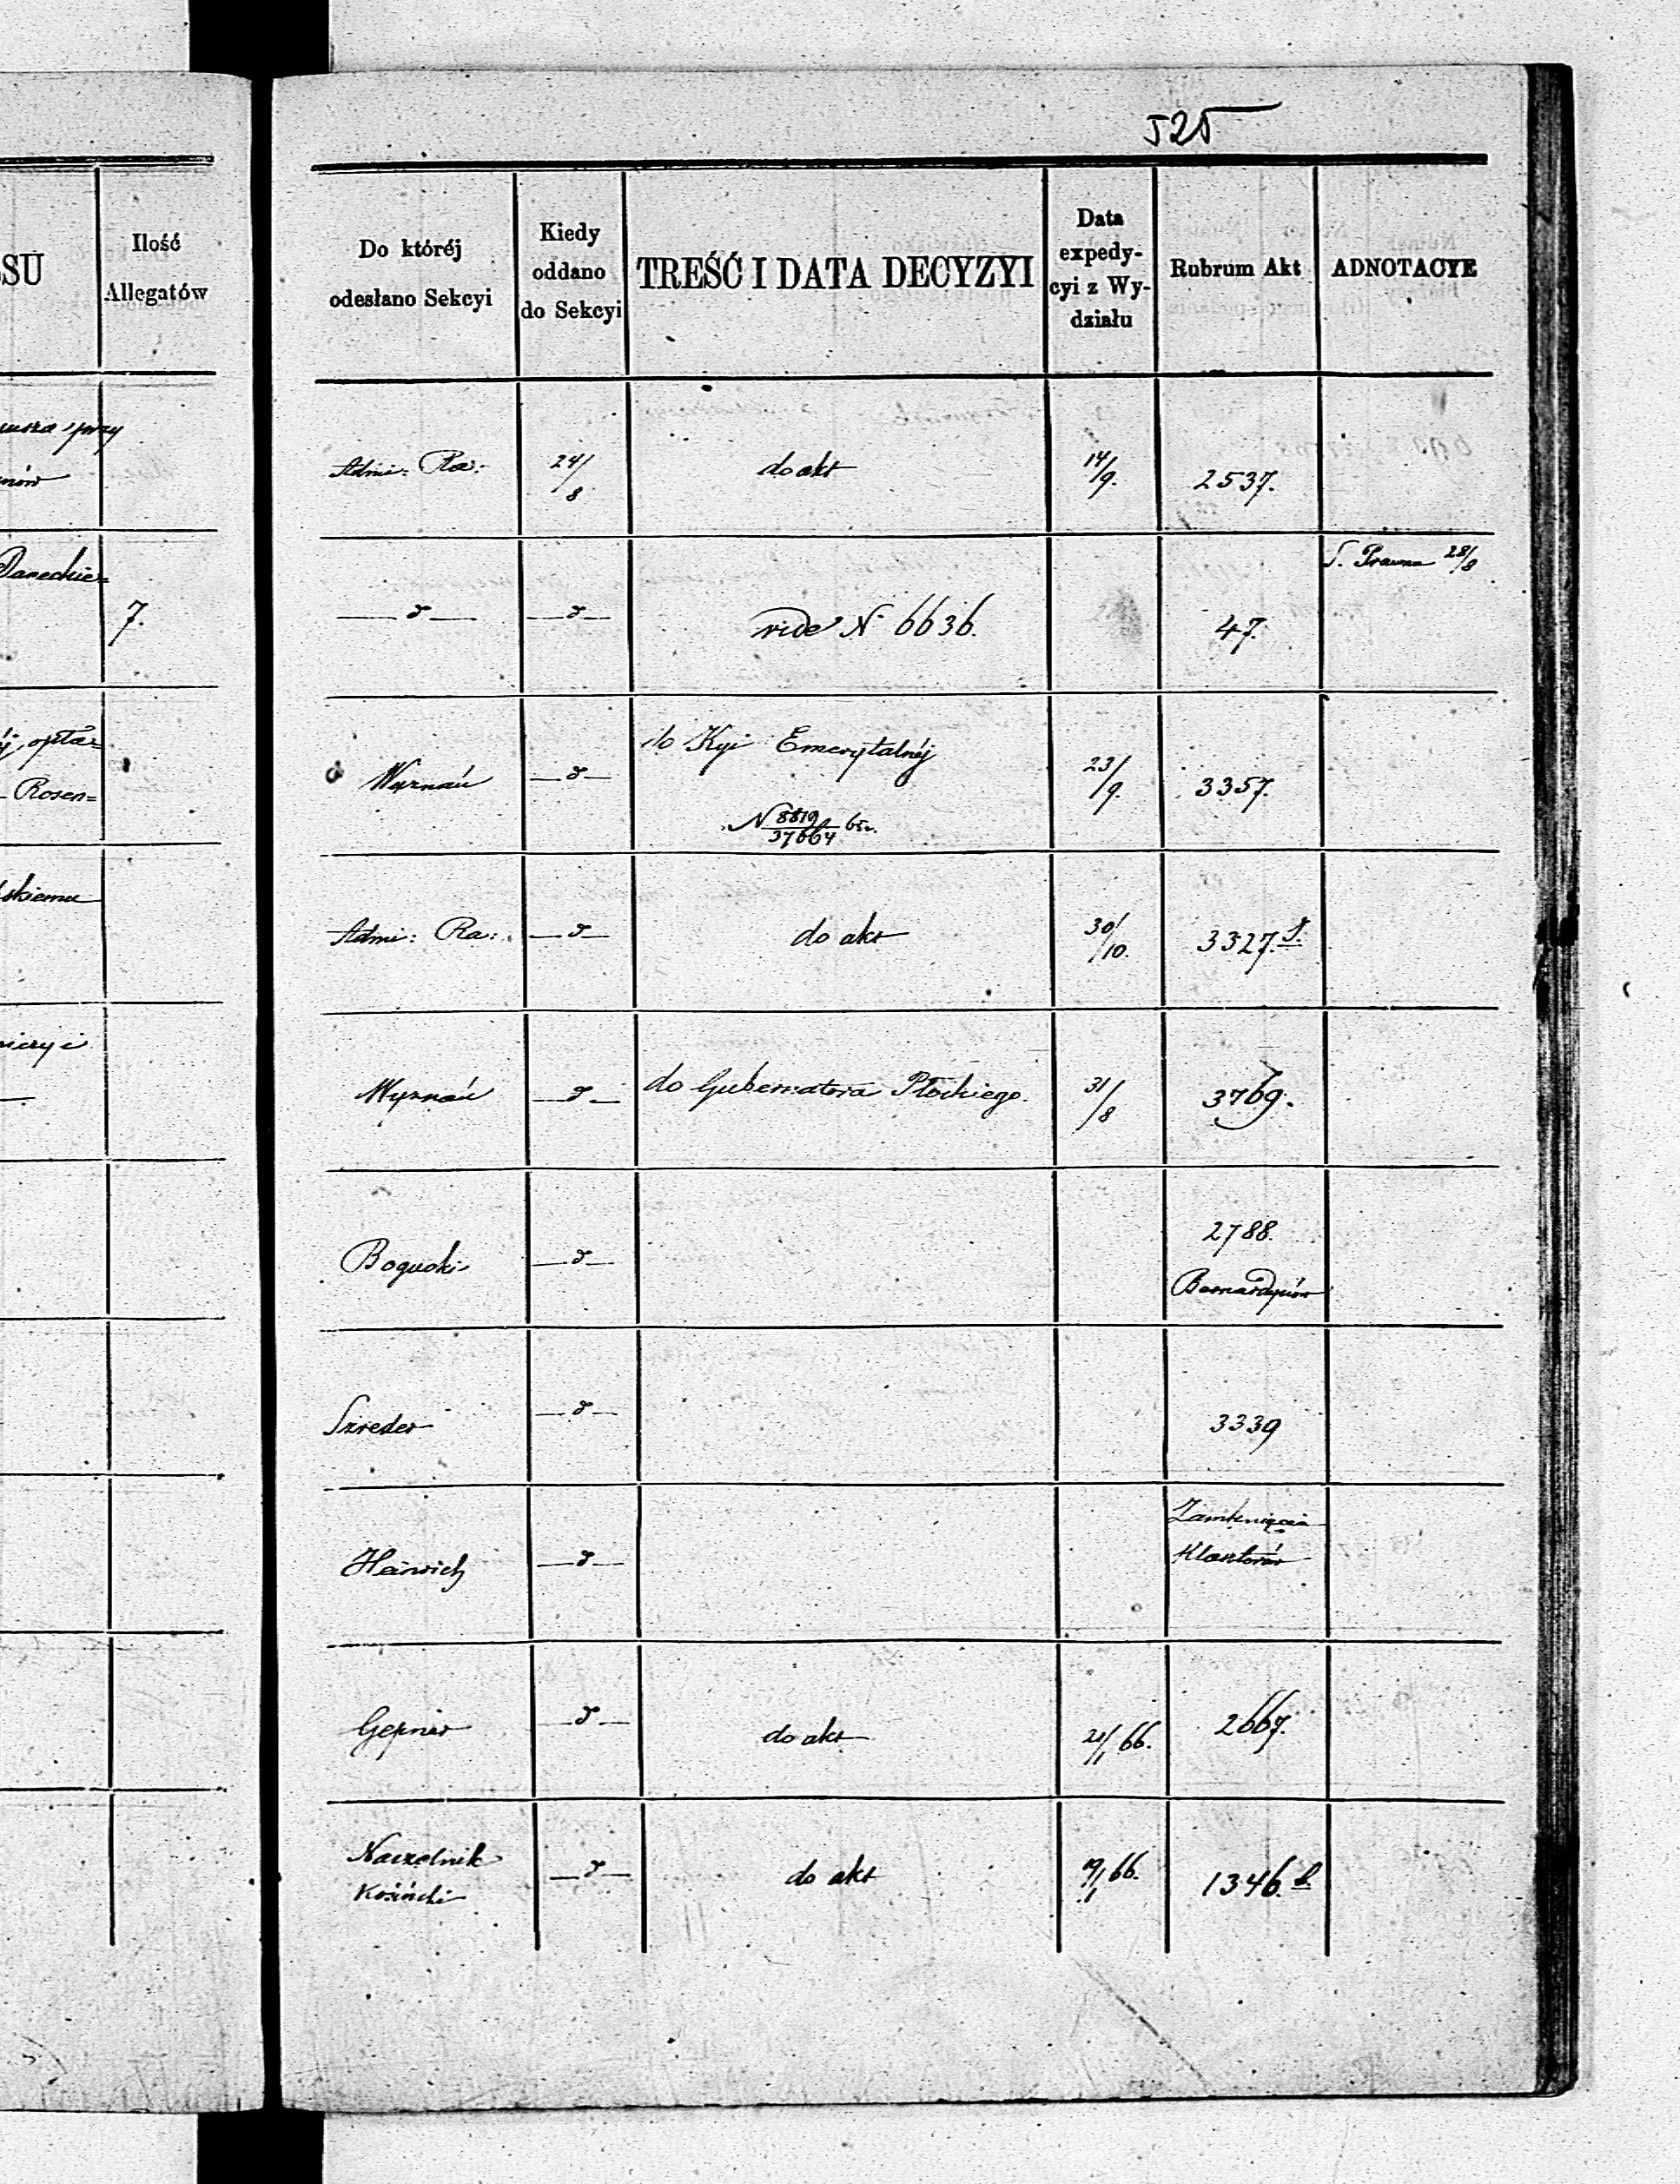 525
SU
Ilość
Allegatów
Do któréj
odesłano Sekcyi
Kiedy
oddano
do Sekcyi
TREŚĆ I DATA DECYZYI
Data
expedy-
cyi z Wy-
działu
Rubrum Akt
ADNOTACYE
przy
Admi: Ra: 24/8 do akt 14/9. 2537.
7.
— d — — d — vide N 6636. 47. S. Prawna 28/8
Rosen=
Wyznań — d — do Kyi Emerytalnéj 23/9. 3357.
N 8819/37664
skiemu
Admi: Ra: — d — do akt 30/10. 3327.
Wyznań — d — do Gubernatora Płockiego. 31/8 3769.
Bogucki — d — 2788.
Bernardynów
Szreder — d — 3339
Heinrich — d — Zamknięcia
Klasztorów
Gepner — d — do akt 21/1 66. 2667.
Naczelnik
Kosiński — d — do akt 19/1 66. 1346.